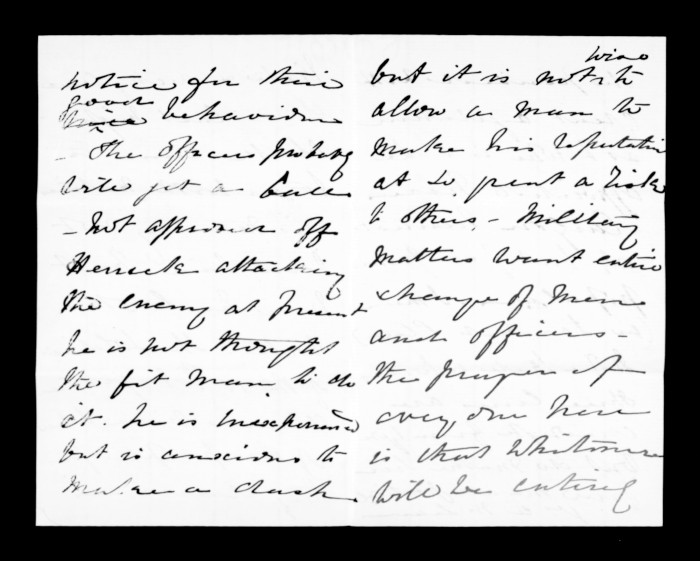 notice for their
good
nice behaviour
- The officers probably
will get a Ball
- Not approved off
Herrick attacking
the enemy at present
he is not thought
the fit man to do
it. he is inexperienced
but is anxious to
make a dash
wise
but it is not to
allow a man to
make his reputation
at so great a risk
to others - Military
matters want entire
change of men
and officers -
the prayer of
every one here
is that Whitmore
will be entirely